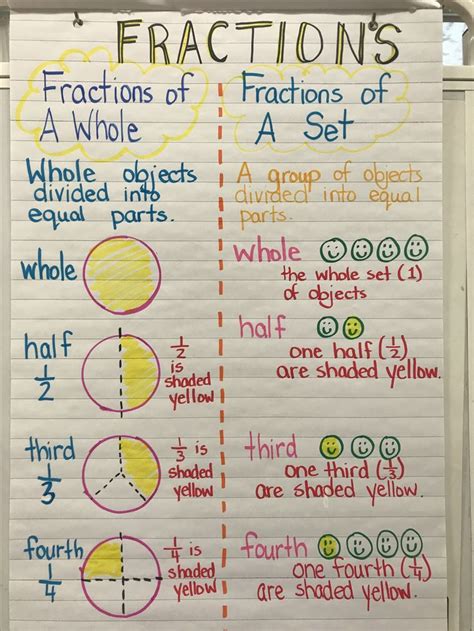 FRACTIONS
Fractions of
A Whole
Whole objects
divided into
equal parts.
whole
half
1/2
1/2
is
shaded
yellow
third
1/3
1/3 is
shaded
yellow
fourth
1/4
1/4 is
shaded
yellow
Fractions of
A Set
A group of objects
divided into equal
parts.
whole
the whole set (1)
of objects
half
one half (1/2)
are shaded yellow.
third
one third (1/3)
are shaded yellow.
fourth
one fourth (1/4)
are shaded yellow.